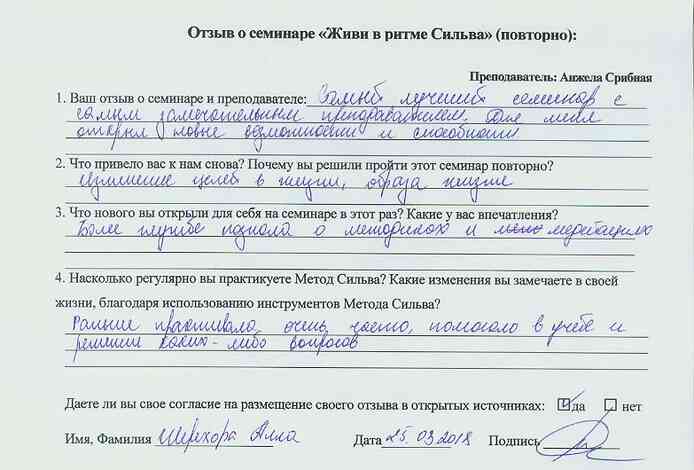 Отзыв о семинаре «Живи в ритме Сильва» (повторно):
Преподаватель: Анжела Срибная
1. Ваш отзыв о семинаре и преподавателе: Самый лучший семинар с
самым замечательным преподавателем. Для меня
открыл новые возможности и способности
2. Что привело вас к нам снова? Почему вы решили пройти этот семинар повторно?
Изменение целей в жизни, образа жизни
3. Что нового вы открыли для себя на семинаре в этот раз? Какие у вас впечатления?
Более глубже познала о методиках и медитациях
4. Насколько регулярно вы практикуете Метод Сильва? Какие изменения вы замечаете в своей
жизни, благодаря использованию инструментов Метода Сильва?
Раньше очень часто, помогало в учебе и
решении каких-либо вопросов
Даете ли вы свое согласие на размещение своего отзыва в открытых источниках: да нет
Имя, Фамилия Алла Дата 25.03.2018 Подпись